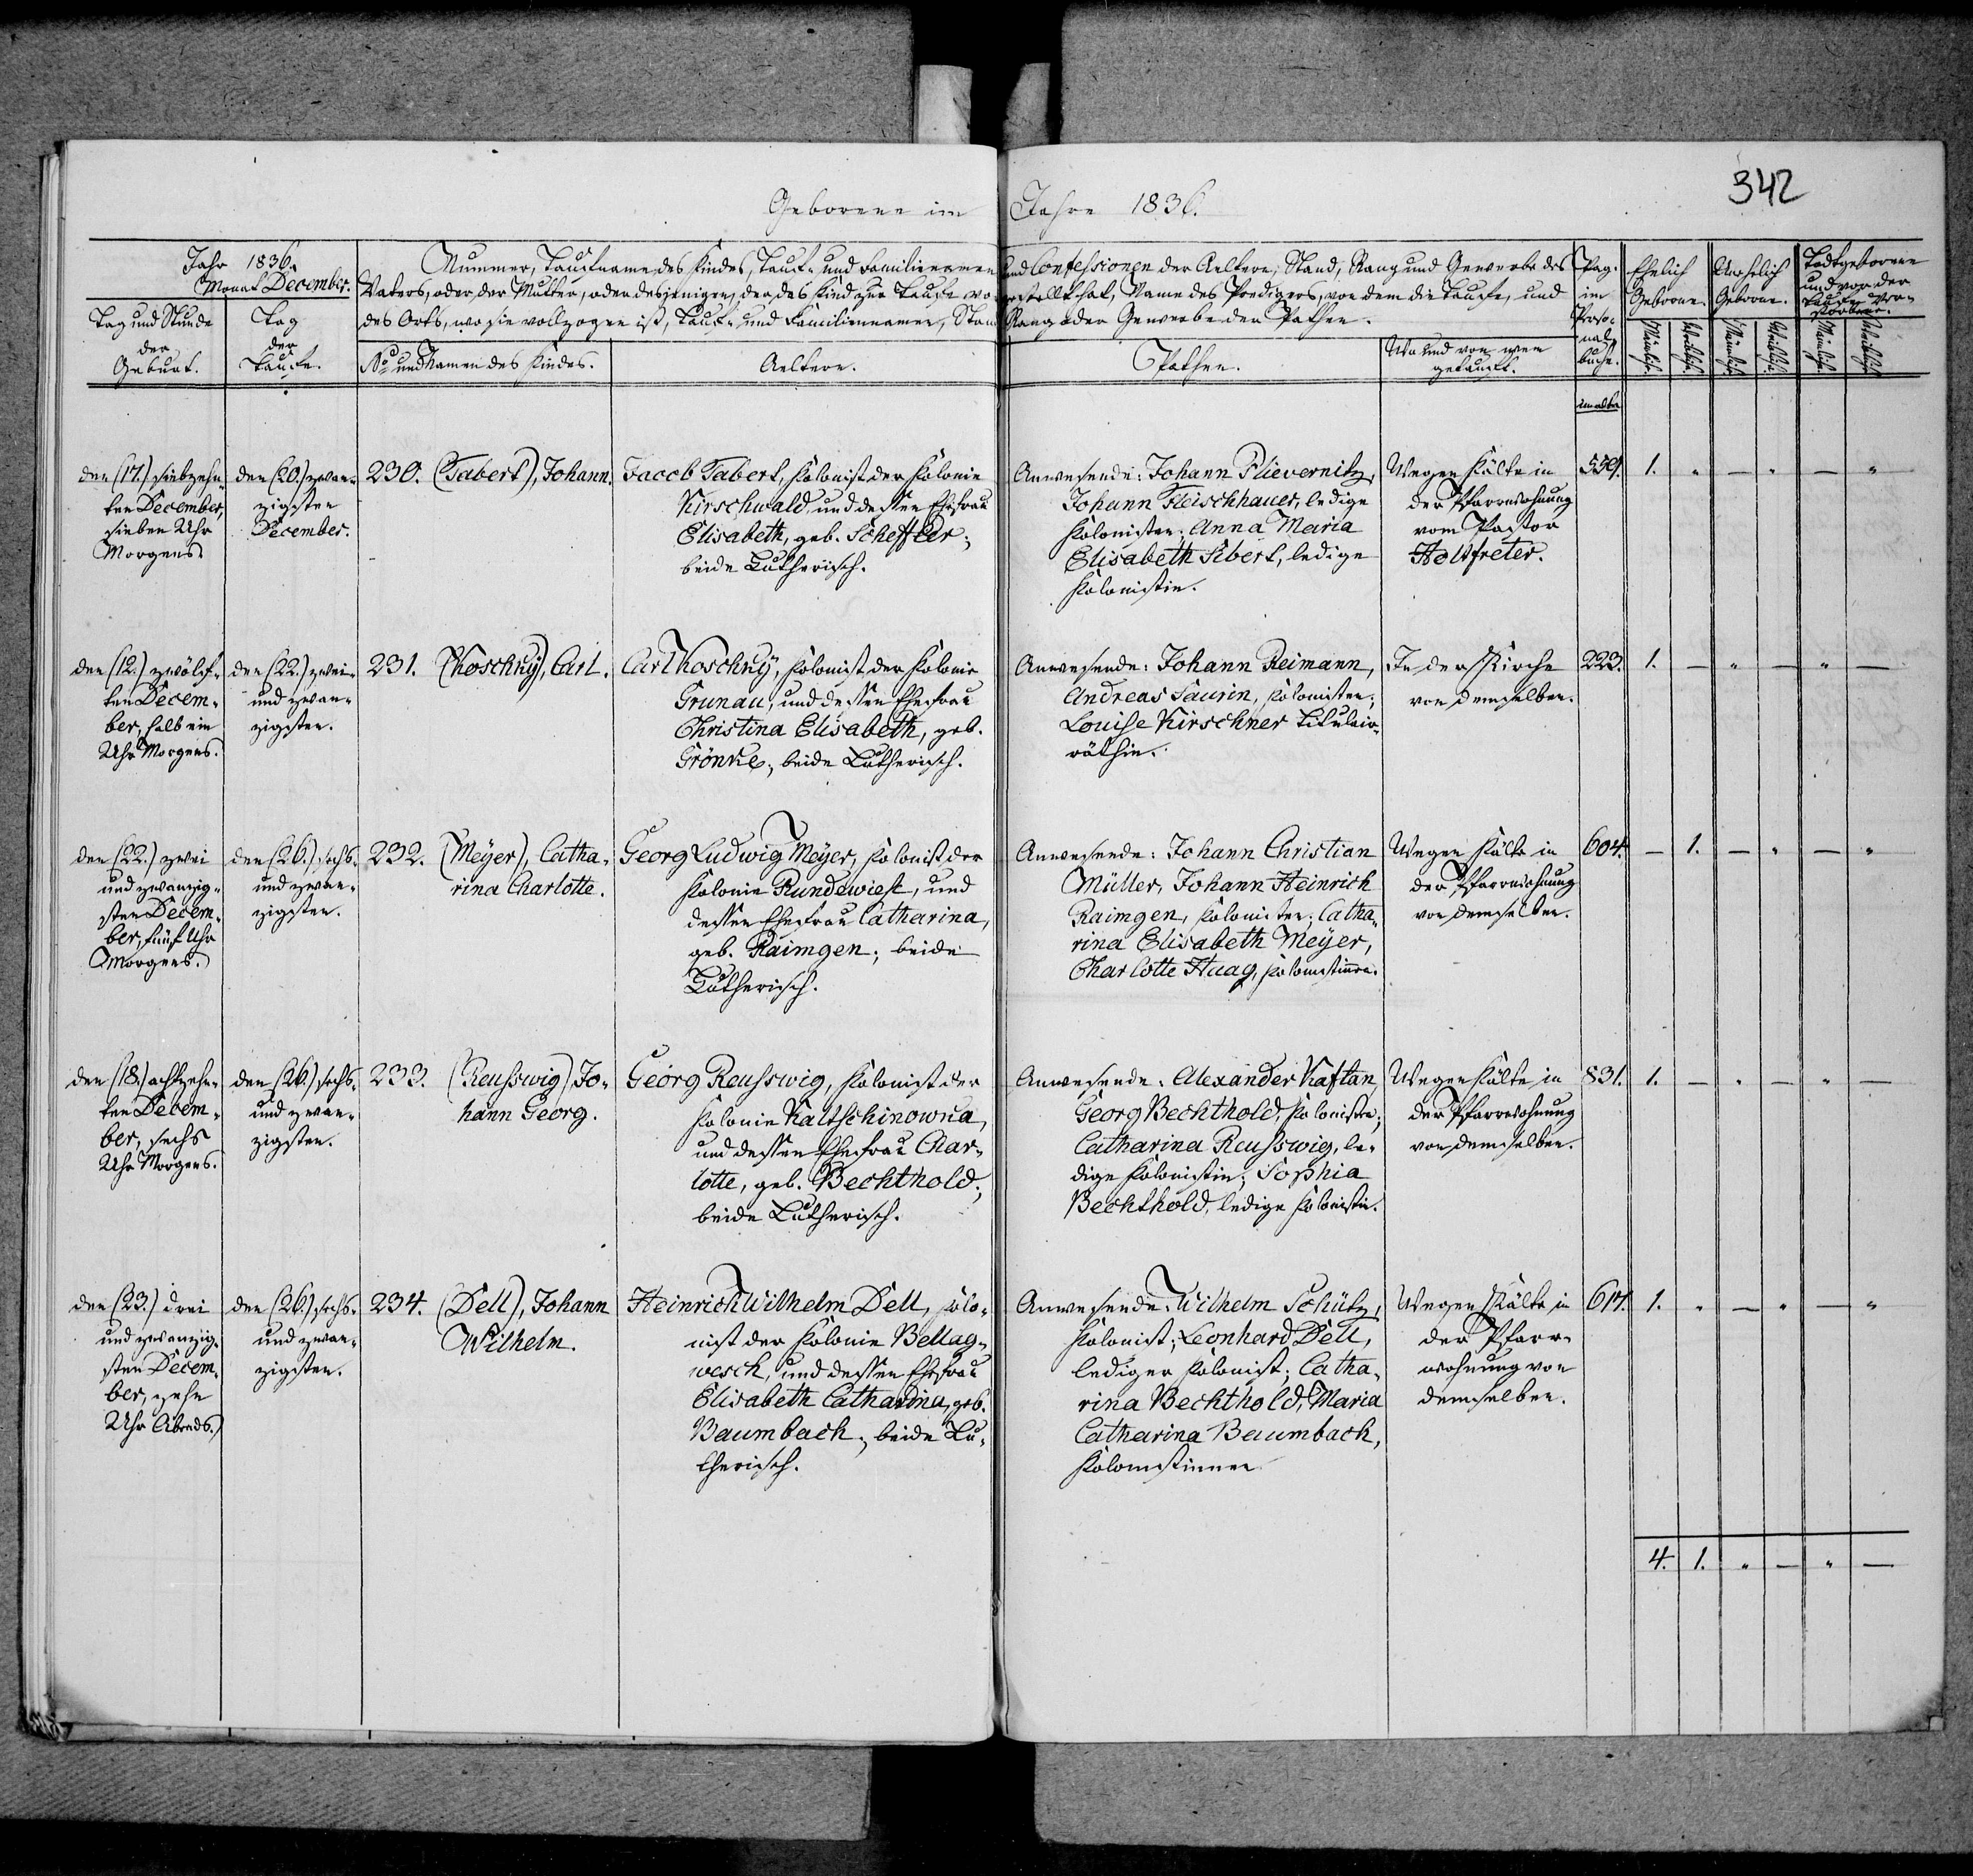 342
Geborene im Jahre 1836.
Jahr 1836.
Monat December.
Tag und Stunde der Geburt.
Tag der Taufe.
Nummer, Taufname des Kindes, Tauf- und Familiennamen und Confessionen der Aeltern, Stand, Rang und Gewerbe des
Vaters, oder der Mutter, oder desjenigen, der das Kind zur Taufe vorgestellt hat, Name des Predigers, von dem die Taufe, und
des Orts, wo sie vollzogen ist, Tauf- und Familiennamen, Stand Rang oder Gewerbe der Pathen.
No und Namen des Kindes.
Aeltern.
Pathen.
Wo und von wem
getauft.
Pag.
im
Perso-
nal-
buche.
Ehelich
Geborne.
Unehelich
Geborne.
Todtgeborene
und vor der
Taufe Ver-
storbene.
Männlich. Weiblich. Männlich. Weiblich. Männlich. Weiblich.
den (17.) siebzehn-
ten December,
sieben Uhr
Morgens
den (20.) zwan-
zigsten
December.
230. (Tabert), Johann.
Jacob Tabert, Kolonist der Kolonie
Kirschwald, und dessen Ehefrau
Elisabeth, geb. Scheffler;
beide Lutherisch.
Anwesende: Johann Plievernitz,
Johann Fleischhauer, ledige
Kolonisten; Anna Maria
Elisabeth Sibert, ledige
Kolonistin.
Wegen Kälte in
der Pfarrwohnung
vom Pastor
Holtfreter.
559. 1. " — " — "
den (12.) zwölf-
ten Decem-
ber, halb ein
Uhr Morgens.
den (22.) zwei
und zwan-
zigsten.
231. (Koschky), Carl.
Carl Koschky, Kolonist der Kolonie
Grunau, und dessen Ehefrau
Christina Elisabeth, geb.
Grönke; beide Lutherisch.
Anwesende: Johann Reimann,
Andreas Saurin, Kolonisten;
Louise Kirschner Titulair-
räthin.
In der Kirche
von demselben.
223. 1. — " — " —
den (22.) zwei
und zwanzig-
sten Decem-
ber, fünf Uhr
Morgens.
den (26.) sechs-
und zwan-
zigsten.
232. (Meyer), Catha-
rina Charlotte.
Georg Ludwig Meyer, Kolonist der
Kolonie Rundewiese, und
dessen Ehefrau Catharina,
geb. Raimgen; beide
Lutherisch.
Anwesende: Johann Christian
Müller, Johann Heinrich
Raimgen, Kolonisten; Catha-
rina Elisabeth Meyer,
Charlotte Haag, Kolonistinnen.
Wegen Kälte in
der Pfarrwohnung
von demselben.
604. — 1. — " — "
den (18.) achtzehn-
ten Decem-
ber, sechs
Uhr Morgens.
den (26.) sechs-
und zwan-
zigsten.
233. (Reusswig) Jo-
hann Georg.
Georg Reusswig, Kolonist der
Kolonie Kaltschinowna,
und dessen Ehefrau Char-
lotte, geb. Bechthold;
beide Lutherisch.
Anwesende: Alexander Kaftan,
Georg Bechthold, Kolonisten;
Catharina Reusswig, le-
dige Kolonistin; Sophia
Bechthold, ledige Kolonistin.
Wegen Kälte in
der Pfarrwohnung
von demselben.
831. 1. — " — " —
den (23.) drei
und zwanzig-
sten Decem-
ber, zehn
Uhr Abends.
den (26.) sechs-
und zwan-
zigsten.
234. (Dell), Johann
Wilhelm.
Heinrich Wilhelm Dell, Kolo-
nist der Kolonie Bellag-
wesch, und dessen Ehefrau
Elisabeth Catharina, geb.
Baumbach; beide Lu-
therisch.
Anwesende: Wilhelm Schütz,
Kolonist; Leonhard Dell,
lediger Kolonist; Catha-
rina Bechthold, Maria
Catharina Baumbach,
Kolonistinnen
Wegen Kälte in
der Pfarr-
wohnung von
demselben.
617. 1. " — " — "
4. 1. " — " —